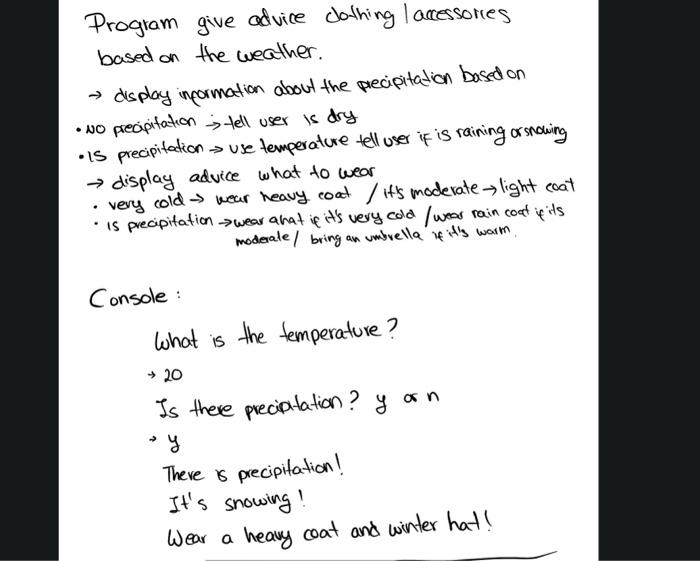 Program give advice clothing / accessories
based on the weather.
→ display information about the precipitation based on
• NO precipitation → tell user is dry
• IS precipitation → use temperature tell user if is raining or snowing
→ display advice what to wear
• very cold → wear heavy coat / it's moderate → light coat
• is precipitation → wear a hat if it's very cold / wear rain coat if its
moderate / bring an umbrella if it's warm.
Console :
What is the temperature ?
→ 20
Is there precipitation ? y or n
→ y
There is precipitation !
It's snowing !
Wear a heavy coat and winter hat !